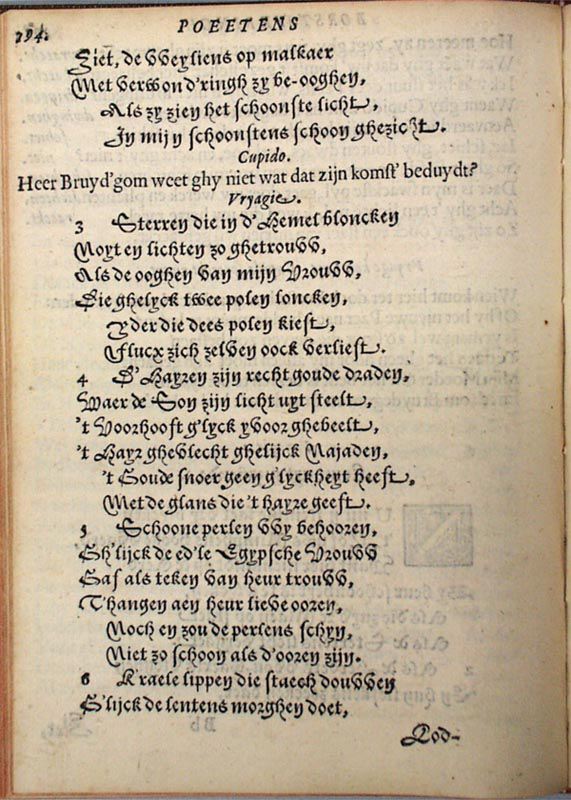 194.
POEETENS
Ziet, de VVeyliens op malkaer
Met verwond'ringh zy be-ooghen,
Als zy zien het schoonste licht,
In mijn schoonstens schoon ghezicht.
Cupido.
Heer Bruyd'gom weet ghy niet wat dat zijn komst' beduydt?
Vryagie.
3 Sterren die in d'Hemel bloncken
Noyt en lichten zo ghetrouVV,
Als de ooghen van mijn VrouVV,
Die ghelyck twee polen loncken,
Yder die dees polen kiest,
Flucx zich zelven oock verliest.
4 D'Hayren zijn recht goude draden,
Waer de Son zijn licht uyt steelt,
't Voorhooft g'lyck yvoor ghebeelt,
't Hayr ghevlecht ghelijck Najaden,
't Goude snoer geen g'lyckheyt heeft,
Met de glans die 't hayre geeft.
5 Schoone perlen VVy behooren,
Gh'lijck de ed'le Egypsche VrouVV
Gaf als teken van heur trouVV,
T'hangen aen heur lieve ooren,
Noch en zou de perlens schyn,
Niet zo schoon als d'ooren zijn.
6 Kraele lippen die staech douVVen
G'lijck de lentens morghen doet,
Rod-